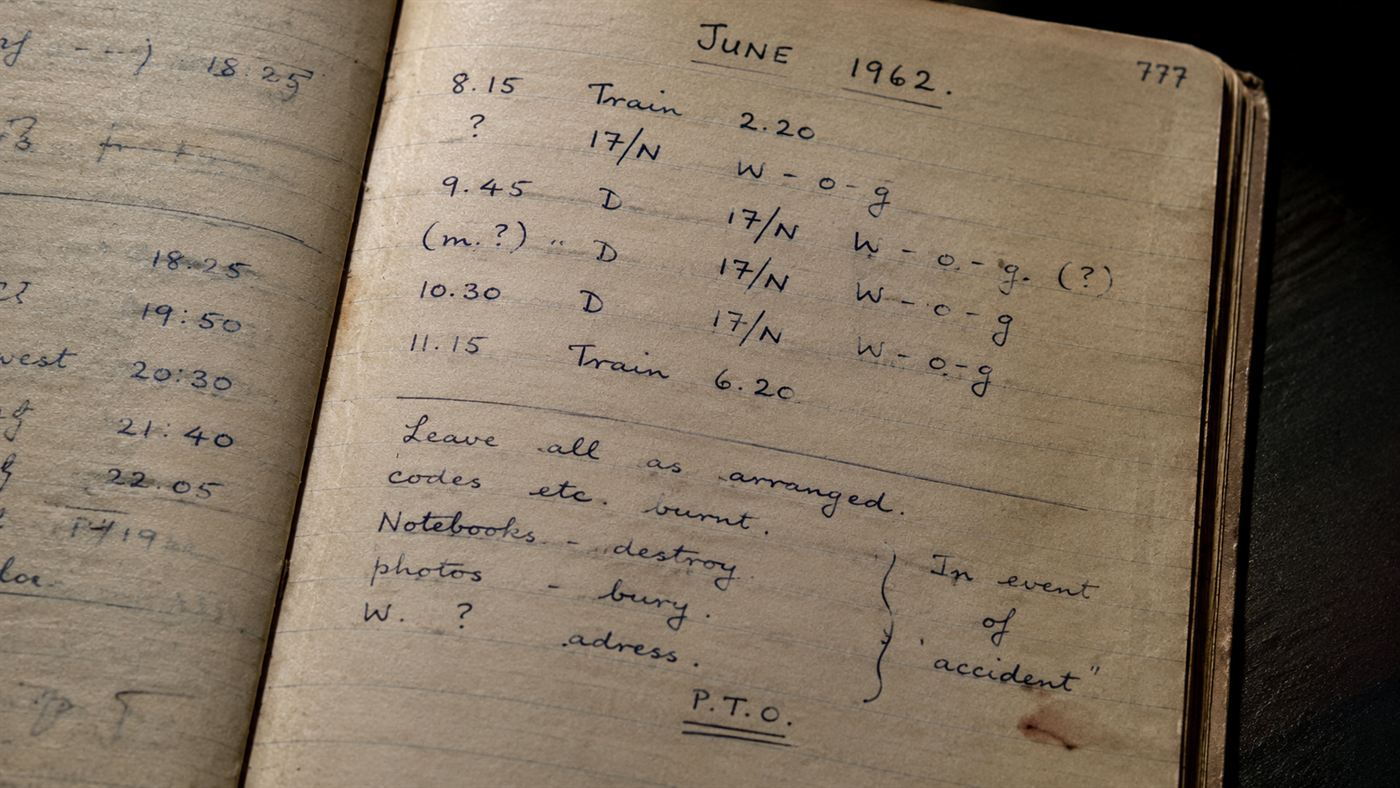 18:25
18.25
19:50
20:30
21:40
22.05
JUNE 1962. 777
8.15 Train 2.20
? 17/N W - o - g
9.45 D 17/N W - o - g. (?)
(m.?) " D 17/N W - o - g
10.30 D 17/N W - o - g
11.15 Train 6.20
Leave all as arranged.
codes etc. burnt.
Notebooks - destroy.
photos - bury.
W. ? adress.
In event
of
'accident"
P.T.O.